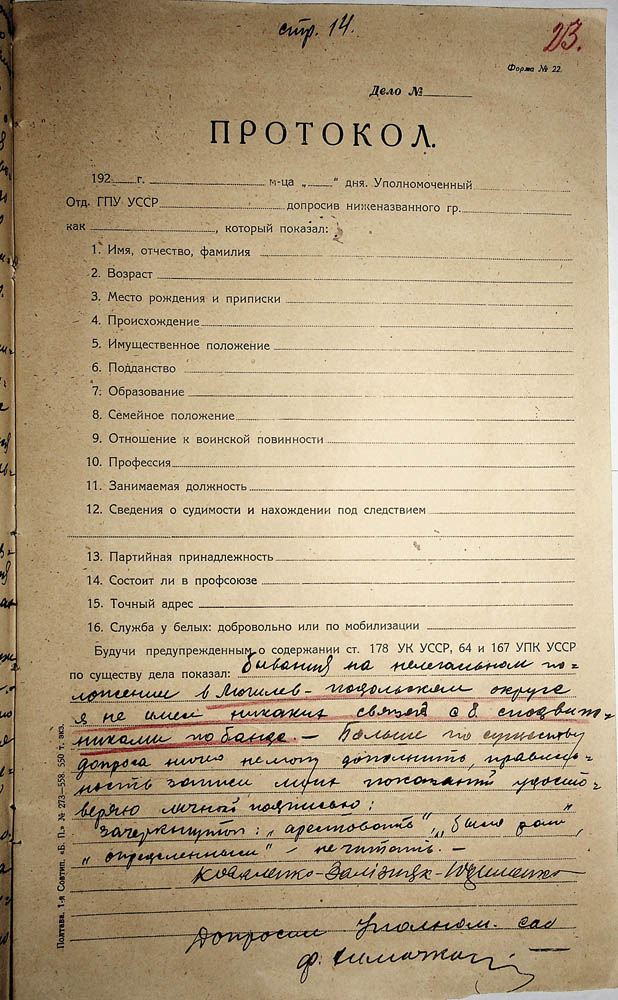 стр. 14.
23.
Форма № 22.
Дело №
ПРОТОКОЛ.
192 г. м-ца „ “ дня. Уполномоченный
Отд. ГПУ УССР допросив ниженазванного гр.
как , который показал:
1. Имя, отчество, фамилия
2. Возраст
3. Место рождения и приписки
4. Происхождение
5. Имущественное положение
6. Подданство
7. Образование
8. Семейное положение
9. Отношение к воинской повинности
10. Профессия
11. Занимаемая должность
12. Сведения о судимости и нахождении под следствием
13. Партийная принадлежность
14. Состоит ли в профсоюзе
15. Точный адрес
16. Служба у белых: добровольно или по мобилизации
Будучи предупрежденным о содержании ст. 178 УК УССР, 64 и 167 УПК УССР
по существу дела показал: бывания на нелегальном по-
ложении в Могилев-подольском округе
я не имел никаких связей с б. сподвиж-
никами по банде. — Больше по существу
допроса ничего не могу дополнить, правиль-
ность записи моих показаний удосто-
веряю личной подписью:
зачеркнутое: „арестовать", „были
„определенными" - не читать. -
Коваленко-Залізняк-
Допросил Уполном.
Полтава. 1-я Совтип. «Б. П.» № 273—558. 550 т. экз.